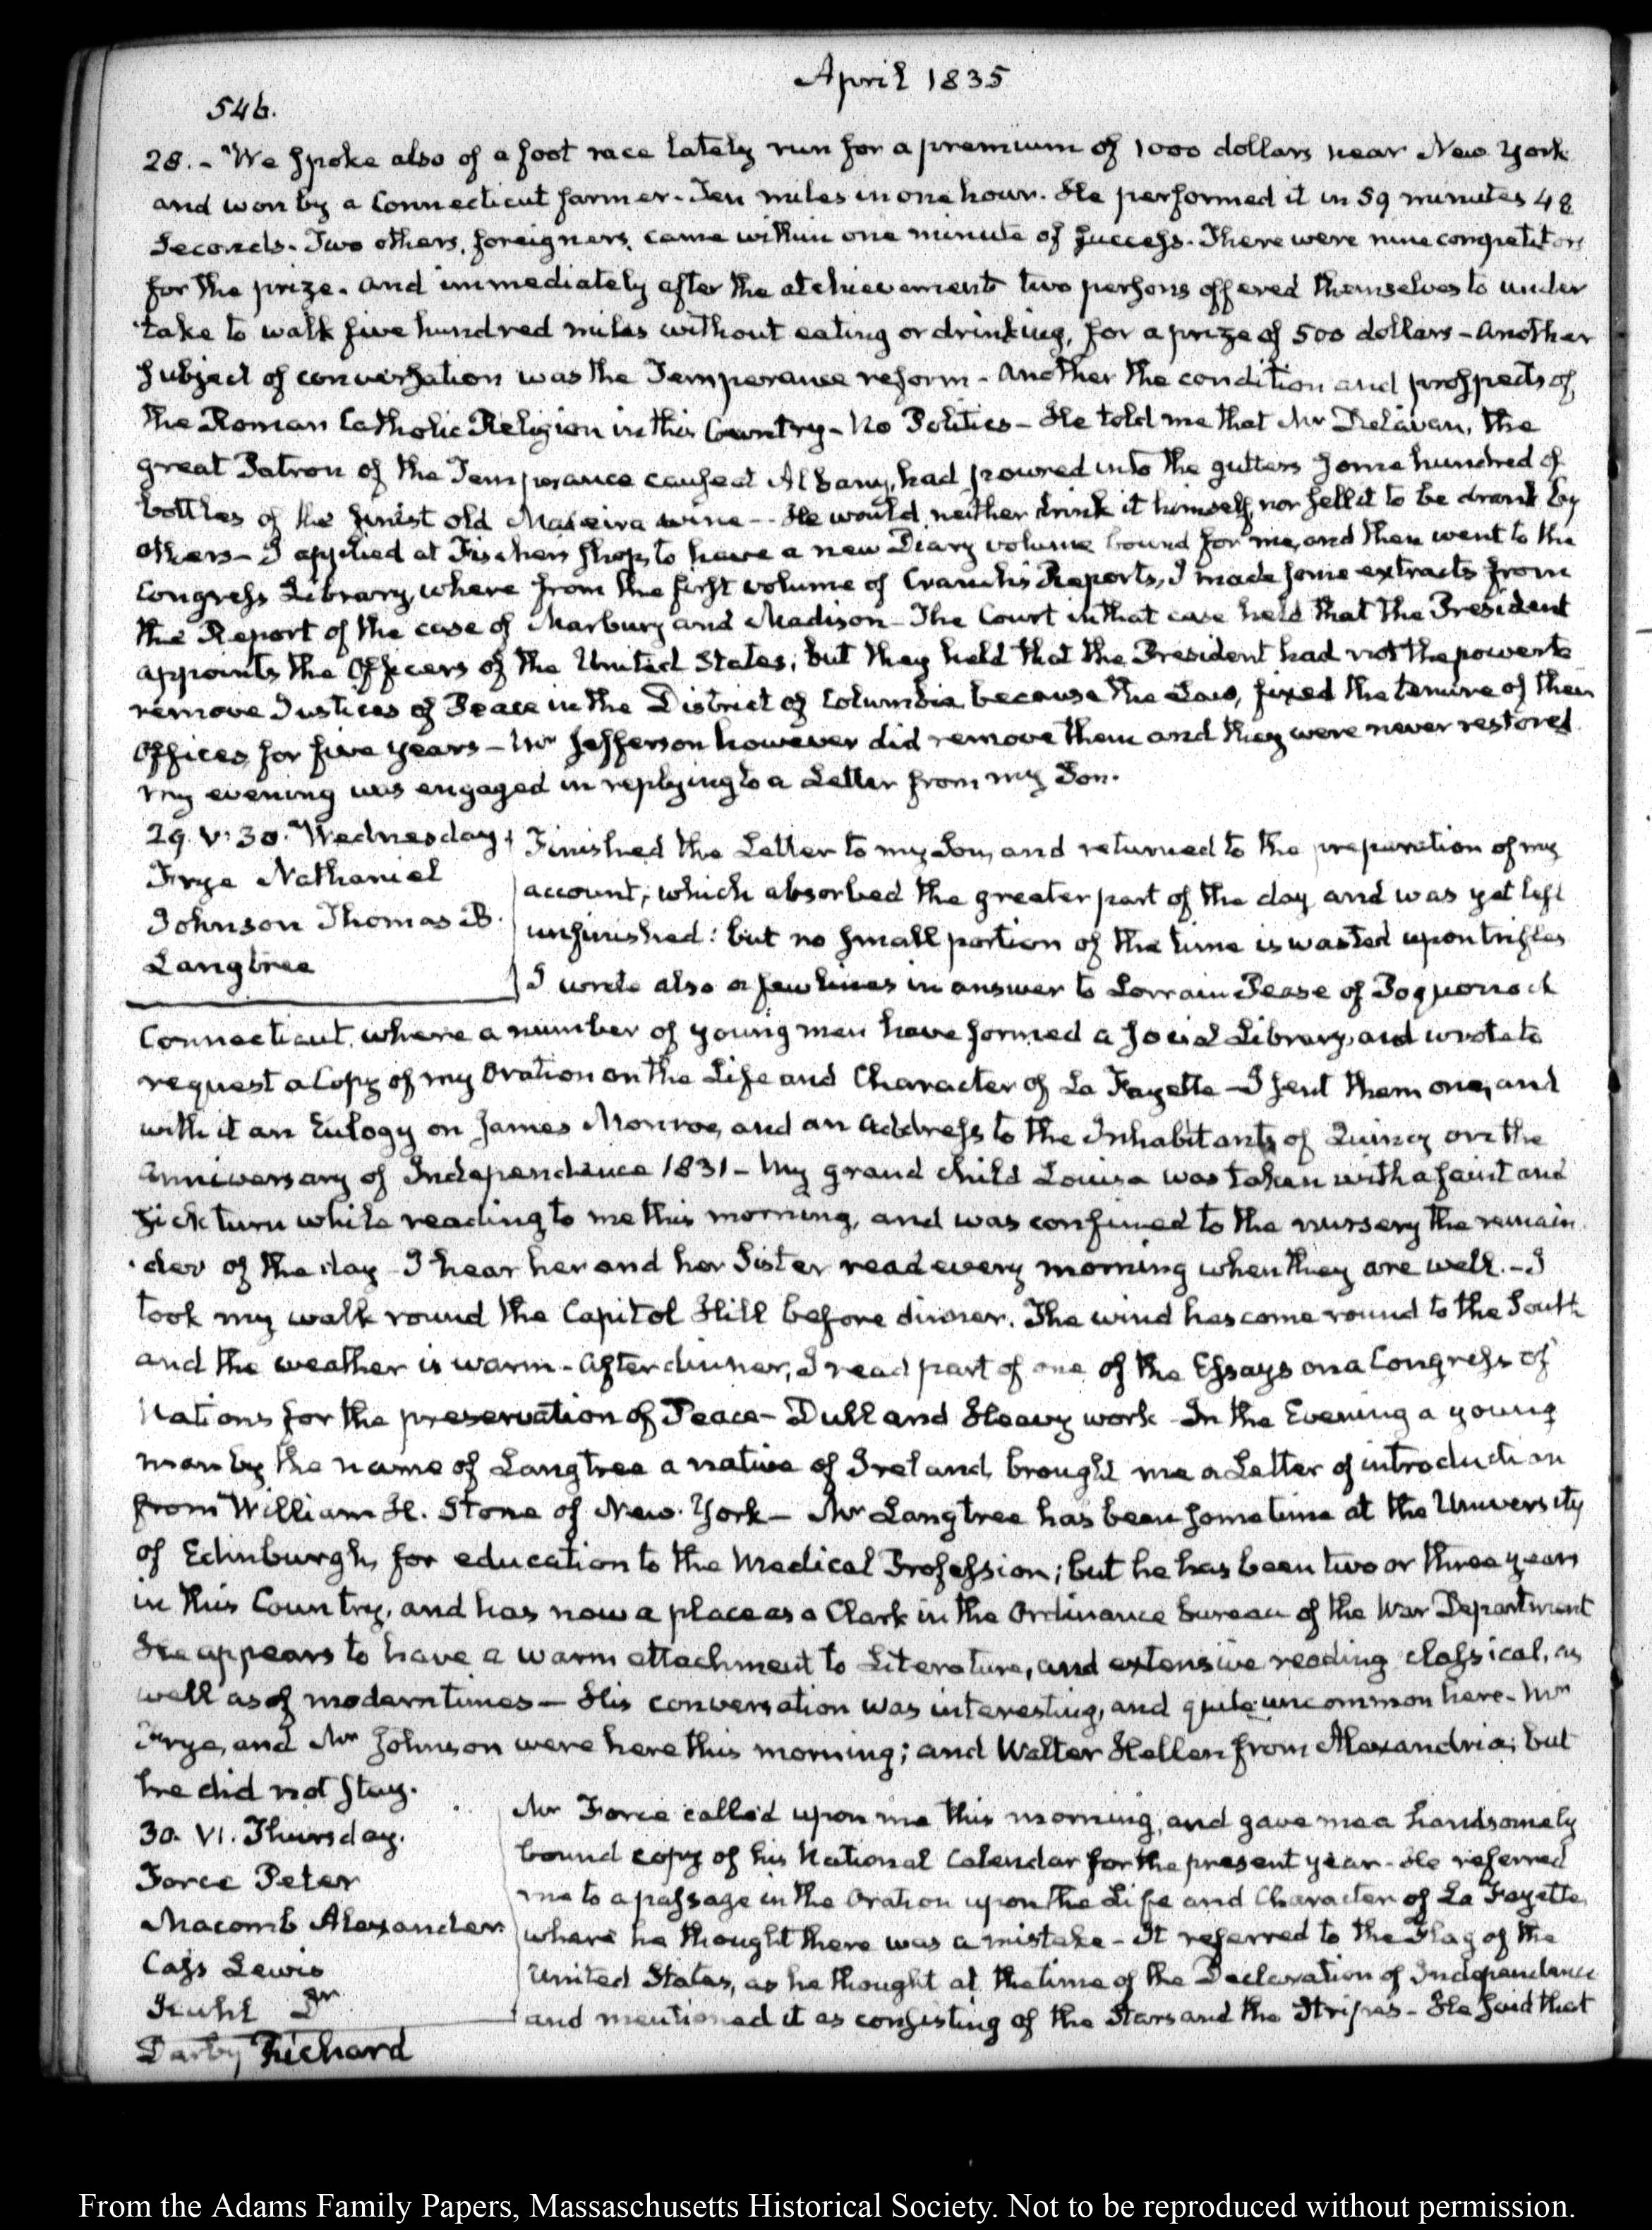 April 1835
546.
28. - "We spoke also of a foot race lately run for a premium of 1000 dollars near New York
and won by a Connecticut farmer - Ten miles in one hour. He performed it in 59 minutes 48
Seconds. Two others, foreigners, came within one minute of success. There were nine competitors
for the prize. and immediately after the atchievement two persons offered themselves to under
take to walk five hundred miles without eating or drinking, for a prize of 500 dollars - another
subject of conversation was the Temperance reform - another the condition and prospects of
the Roman Catholic Religion in this Country - No Politics - He told me that Mr Delavan, the
great Patron of the Temperance cause at Albany, had poured into the gutters some hundred of
bottles of the finest old Madeira wine -- He would neither drink it himself, nor sell it to be drank by
others - I applied at Fischer's shop, to have a new Diary volume bound for me, and then went to the
Congress Library, where from the first volume of Cranch's Reports, I made some extracts from
the Report of the case of Marbury and Madison - The Court in that case held that the President
appoints the Officers of the United States; but they held that the President had not the power to
remove Justices of Peace in the District of Columbia because the Law, fixed the tenure of their
Offices for five years - Mr Jefferson however did remove them and they were never restored
my evening was engaged in replying to a Letter from my Son.
29. V: 30. Wednesday.
Frye Nathaniel
Johnson Thomas B.
Langtree
Finished the Letter to my Son, and returned to the preparation of my
account; which absorbed the greater part of the day and was yet left
unfinished: but no small portion of the time is wasted upon trifles
I wrote also a few lines in answer to Lorrain Pease of Poquonock
Connecticut, where a number of young men have formed a social Library, and wrote to
request a Copy of my Oration on the Life and Character of La Fayette - I sent them one, and
with it an Eulogy on James Monroe, and an Address to the Inhabitants of Quincy on the
anniversary of Independence 1831 - My grand child Louisa was taken with a faint and
sick turn while reading to me this morning, and was confined to the nursery the remain
der of the day - I hear her and her Sister read every morning when they are well. - I
took my walk round the Capitol Hill before dinner. The wind has come round to the South
and the weather is warm - After dinner, I read part of one of the Essays on a Congress of
Nations for the preservation of Peace - Dull and Heavy work - In the Evening a young
man by the name of Langtree a native of Ireland, brought me a Letter of introduction
from William H. Stone of New York - Mr Langtree has been some time at the University
of Edinburgh, for education to the Medical Profession; but he has been two or three years
in this Country, and has now a place as a Clerk in the Ordinance bureau of the War Department
He appears to have a warm attachment to Literature, and extensive reading classical, as
well as of modern times - His conversation was interesting, and quite uncommon here - Mr
Frye, and Mr Johnson were here this morning; and Walter Hellen from Alexandria; but
he did not stay.
30. VI. Thursday.
Force Peter
Macomb Alexander
Cass Lewis
Kuhl Dr
Darby Richard
Mr Force called upon me this morning, and gave me a handsomely
bound copy of his National Calendar for the present year - He referred
me to a passage in the Oration upon the Life and Character of La Fayette,
where he thought there was a mistake - It referred to the Flag of the
United States, as he thought at the time of the Declaration of Independence
and mentioned it as consisting of the Stars and the Stripes - He said that
From the Adams Family Papers, Massaschusetts Historical Society. Not to be reproduced without permission.